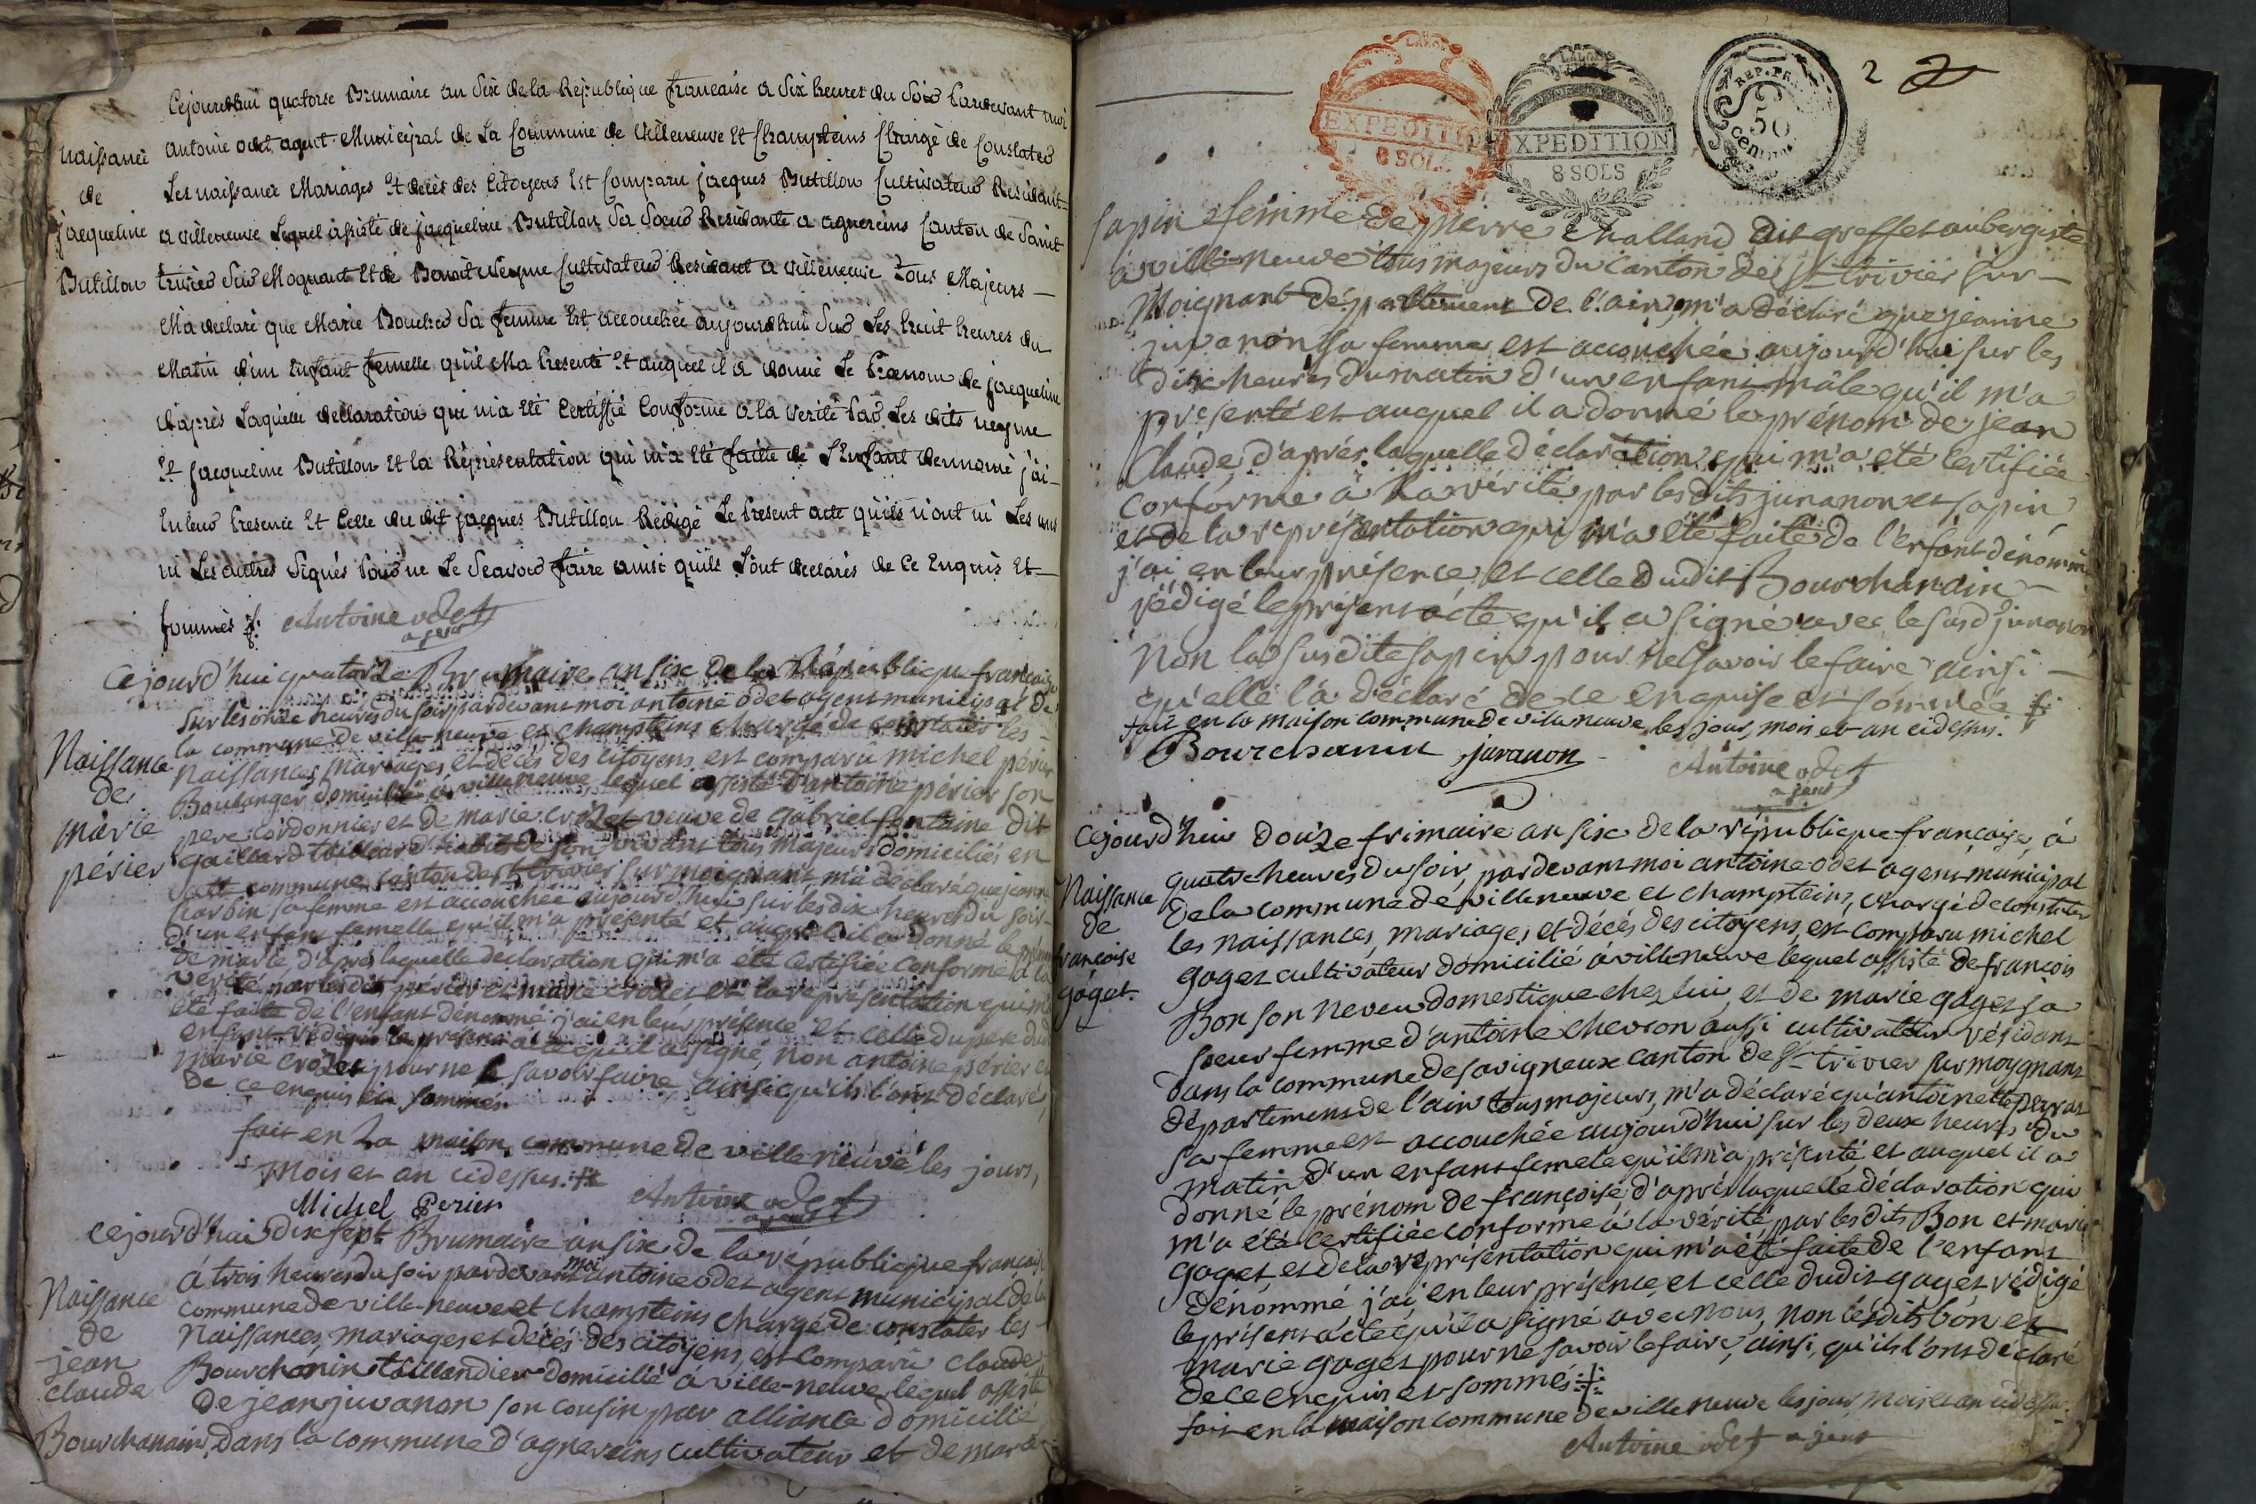 Cejourdhui quatorse Brumaire an Six de la Republique francaise a Six heures du Soir Pardevant moi
antoine odet agent Municipal de La Commune de Villeneuve Et Champteins Chargé de Constater
Les naissance Mariages Et decès des Citoyens Est Comparu jacques Butillon Cultivateur Residant
a villeneuve Lequel assisté de jacqueline Butillon Sa Soeur Residante a agnereins Canton de Saint
trivier Sur Mognant Et de Benoit neyme Cultivateur Residant a villeneuve tous Majeurs
M'a declaré que Marie Boucher Sa femme Est accouchée aujourdhui Sur Les huit heures du
Matin d'un Enfant femelle qu'il Ma Presenté Et auquel il a donné Le Prenom de jacqueline
d'après Laquelle declaration qui m'a Eté Certiffié Conforme a la Verité Par Les dits neyme
Et jacqueline Butillon Et la Réprésentation qui m'a Eté faitte de L'Enfant denomé j'ai
En leur Presence Et Celle du dit jacques Butillon Redigé Le Present acte quils n'ont ni Les uns
ni Les autres Signés Pour ne Le Scavoir faire ainsi quils Sont declarés de Ce Enquis Et
sommés
Naissance
de
jacqueline
Butillon
Antoine odet
agent
Cejourd'hui quatorze Brumaire an six de la République française
sur les onze heures du soir pardevant moi antoine odet agent municipal de
la commune de ville-neuve et champteins chargé de constater les
Naissances, mariages et décès des citoyens est comparu michel périer
Boulanger domicilié à villeneuve lequel assisté d'antoine périer son
pere cordonnier et de marie crozet veuve de gabriel fontaine dit
gaillard de son vivant tous majeurs domiciliés en
commune, canton de St trivier sur moignant m'a déclaré que jeanne
sa femme est accouchée aujourd'hui sur les dix heures du soir
d'un enfant femelle qu'il m'a présenté et auquel il a donné le prénom
de marie d'après laquelle declaration qui m'a été certifiée conforme à la
vérité par lesdits périer et marie crozet et la représentation qui m'a
été faite de l'enfant dénommé j'ai en leur présence et celle du pere dudit
enfant rédigé le présent acte qu'il a signé, non antoine périer et
marie crozet pour ne savoir faire ainsi qu'ils l'ont déclaré,
de ce enquis et sommés
fait en la maison commune de ville neuve les jours,
mois et an cidessus
Naissance
de
marie
périer
Michel Perier Antoine odet
agent
cejourd'hui dix sept Brumaire an six de la république française
à trois heures du soir pardevant moi antoine odet agent municipal de la
commune de ville-neuve et champteins chargé de constater les
Naissances, mariages et décès des citoyens, est comparu claude
Bourchanin taillandier domicilié a ville-neuve lequel assisté
de jean juvanon son cousin par alliance domicilié
dans la commune d'agnereins cultivateur et de marie
Naissance
de
jean
claude
Bourchanain
EXPEDITION
8 SOLS
EXPEDITION
8 SOLS
REP. FRA
50
Centimes
2
sapin femme de pierre challand dit greffet aubergiste
à ville-neuve tous majeurs du canton de St trivier sur
Moignant département de l'ain, m'a déclaré que jeanne
juvanon sa femme est accouchée aujourd'hui sur les
dix heures du matin d'un enfant mâle qu'il m'a
présenté et auquel il a donné le prénom de jean
Claude, d'après laquelle déclaration qui m'a été certifiée
conforme à la vérité par les dits juvanon et sapin
et de la représentation qui m'a été faite de l'enfant dénommé
j'ai en leur présence et celle dudit Bourchanain
rédigé le présent acte qu'il a signé avec le susd juvanon
Non la susdite sapin pour ne savoir le faire ainsi
qu'elle l'a déclaré de ce enquise et sommée
fait en la maison commune de villeneuve les jour, mois et an cidessus.
Bourchanin juvanon Antoine odet
agent
cejourd'hui douze frimaire an six de la république française, à
quatre heures du soir, pardevant moi antoine odet agent municipal
de la commune de villeneuve et champteins, chargé de constater
les naissances, mariages et décès des citoyens, est comparu michel
gaget cultivateur domicilié à villeneuve lequel assisté de françois
Bon son neveu domestique chez lui, et de marie gaget sa
soeur femme d'antoine chevron aussi cultivateur résidant
dans la commune de savigneux canton de St trivier sur moygnant
département de l'ain tous majeurs, m'a déclaré qu'antoinette perras
sa femme est accouchée aujourd'hui sur les deux heures du
matin d'un enfant femele qu'il m'a présenté et auquel il a
donné le prénom de françoise, d'après laquelle déclaration qui
m'a été certifiée conforme à la vérité, par les dits Bon et marie
gaget et de la représentation qui m'a été faite de l'enfant
dénommé, j'ai en leur présence, et celle dudit gaget rédigé
le présent acte qu'il a signé avec nous, non lesdits bon et
marie gaget pour ne savoir le faire, ainsi, qu'ils l'ont déclaré
de ce enquis et sommés
fait en la maison commune de villeneuve les jour mois et an cidessus
Naissance
de
françoise
gaget.
Antoine odet agent